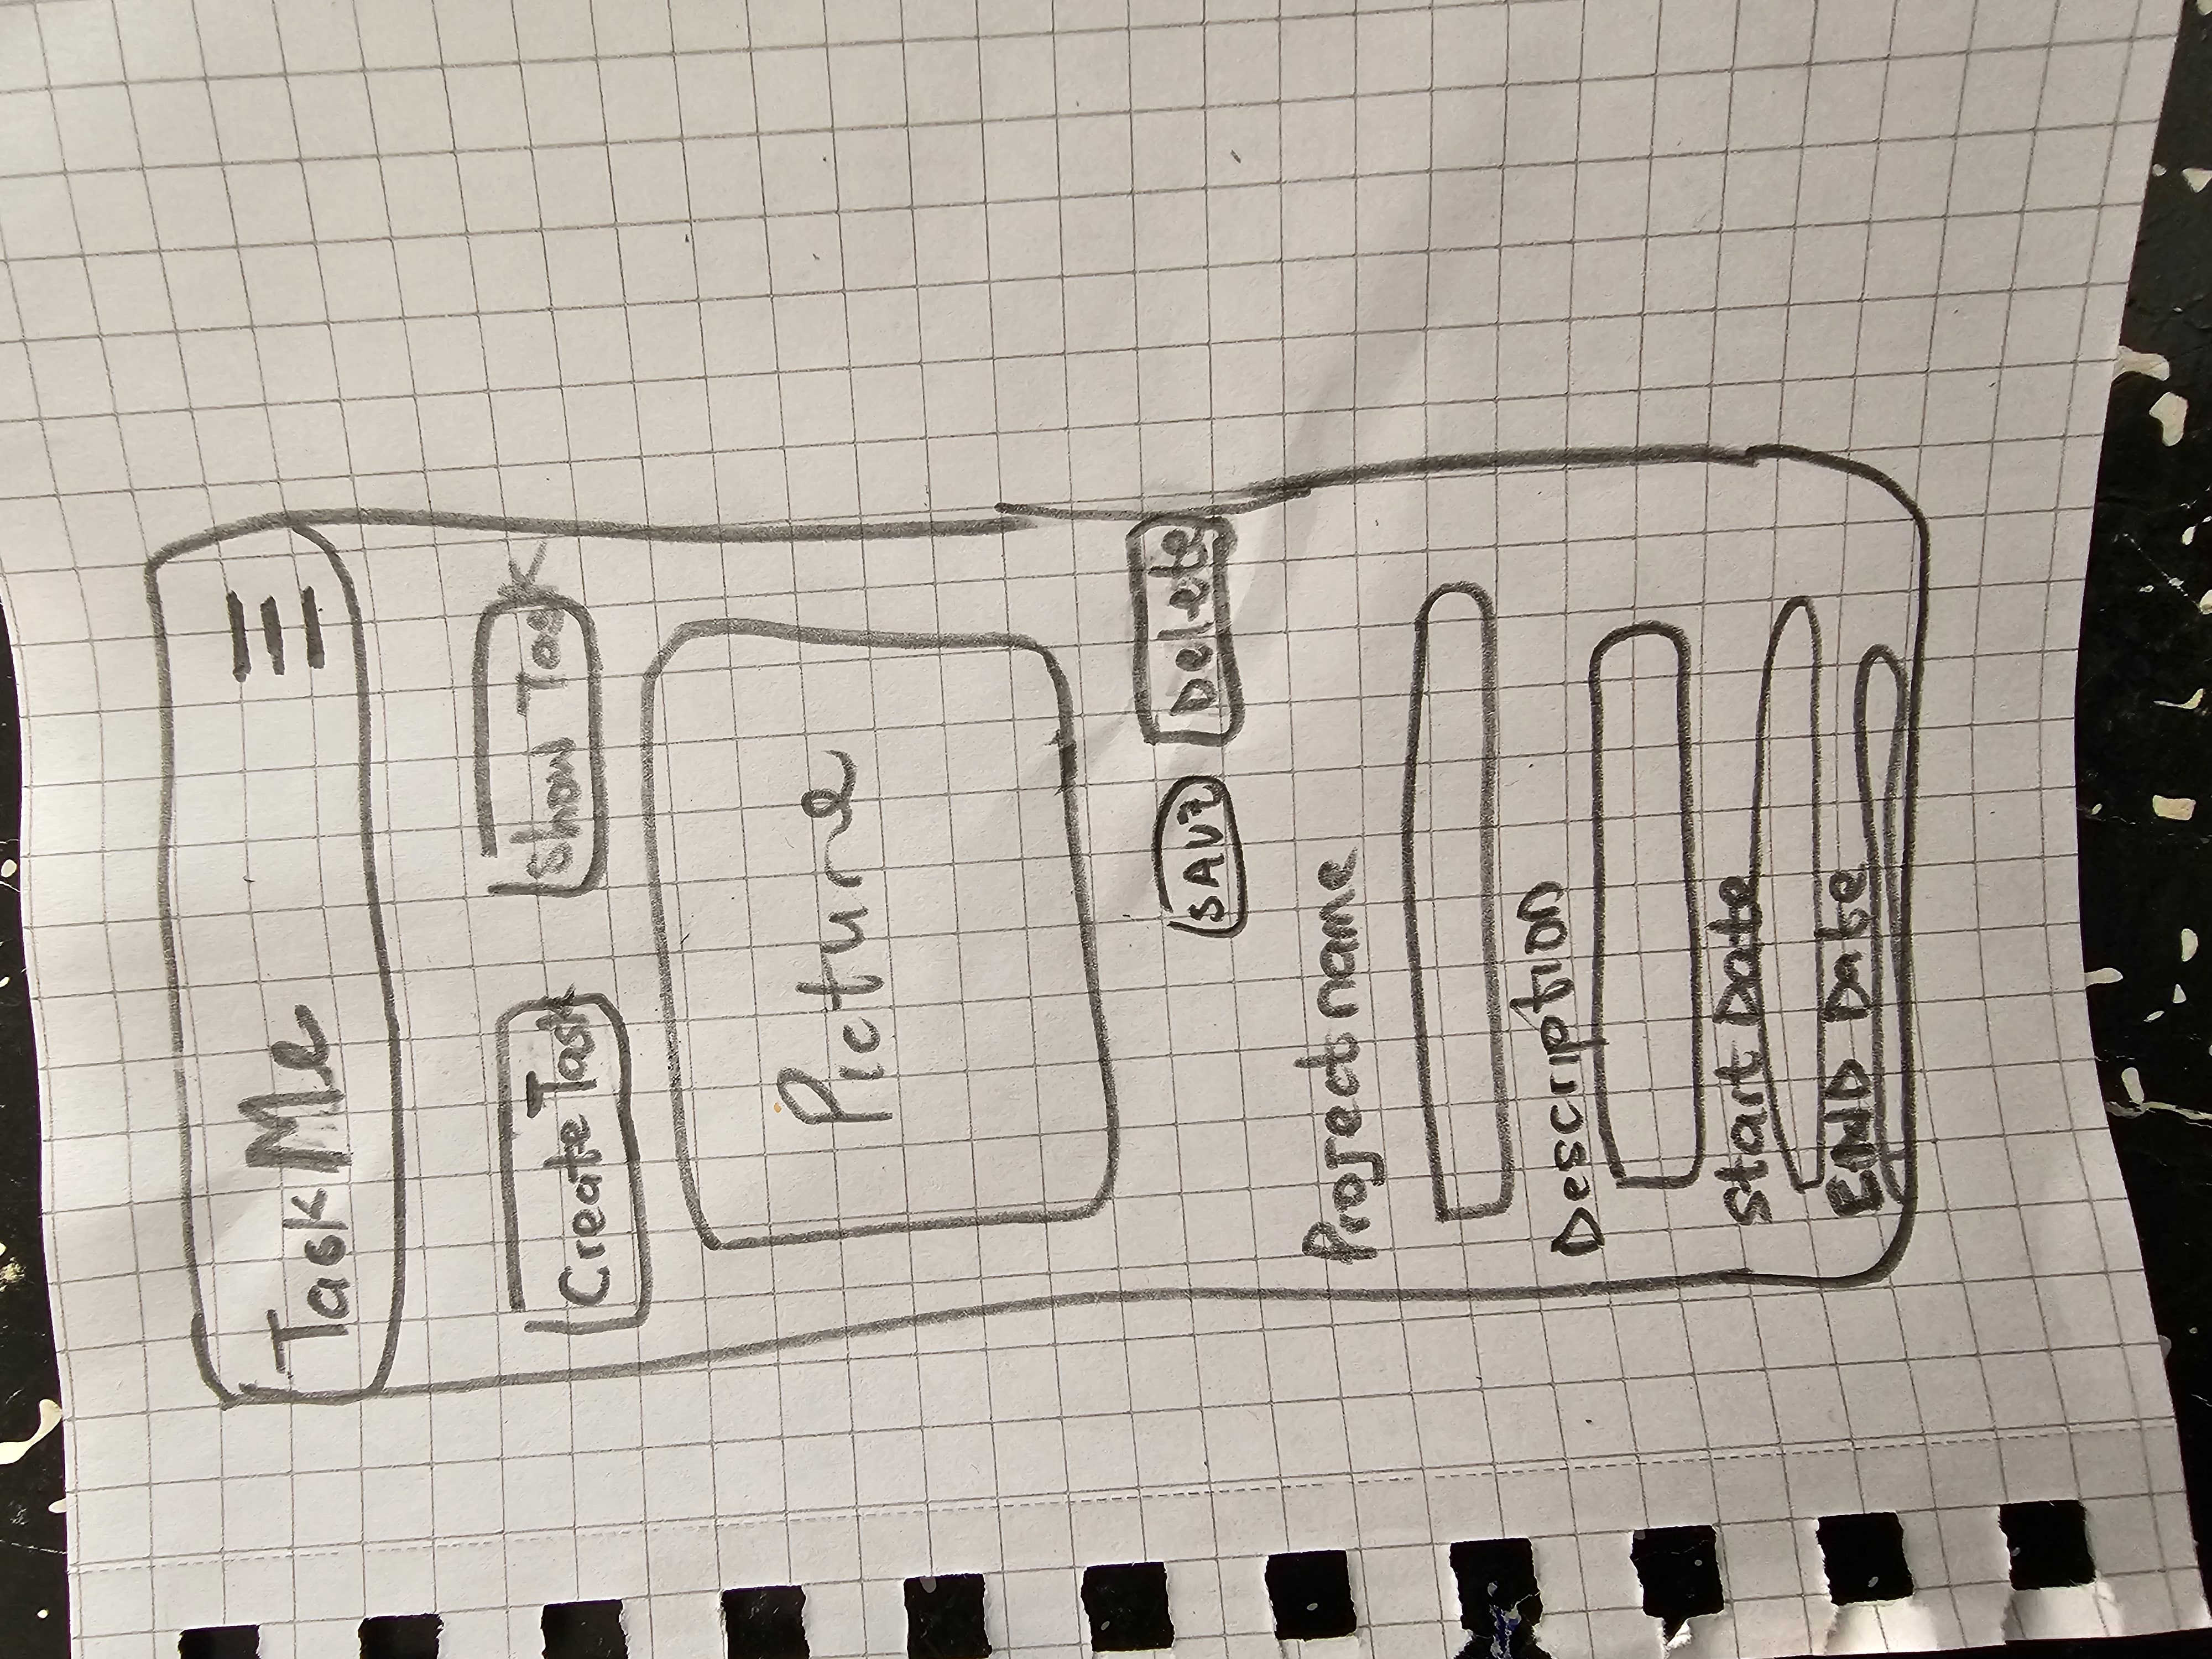 TaskMe
Create Task
Show Task
Picture
SAVE
Delete
Project name
Description
Start Date
END Date